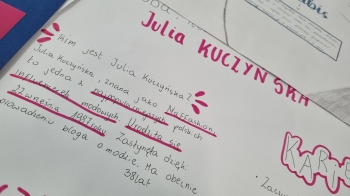 Julia KUCZYŃSKA
Kim jest Julia Kuczyńska?
Julia Kuczyńska, znana jako Maffashion,
to jedna z najpopularniejszych polskich
influencerek modowych. Urodziła się
22 września 1987 roku. Zasłynęła dzięki
prowadzeniu bloga o modzie. Ma obecnie
38 lat
KARIE